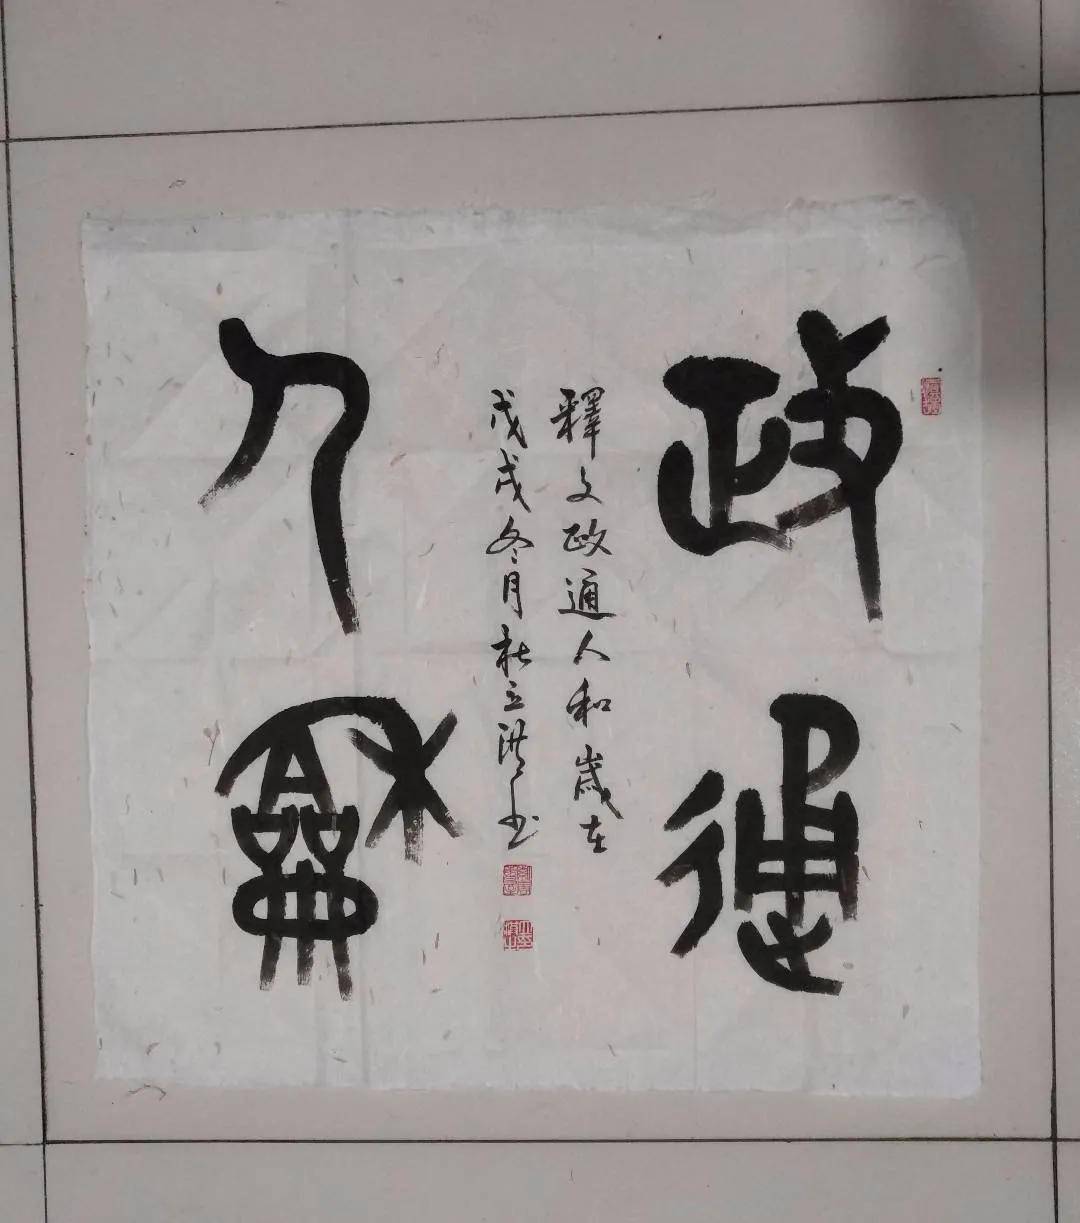 政通
人龢
釋文政通人和歲在
戊戌冬月杜立洪书